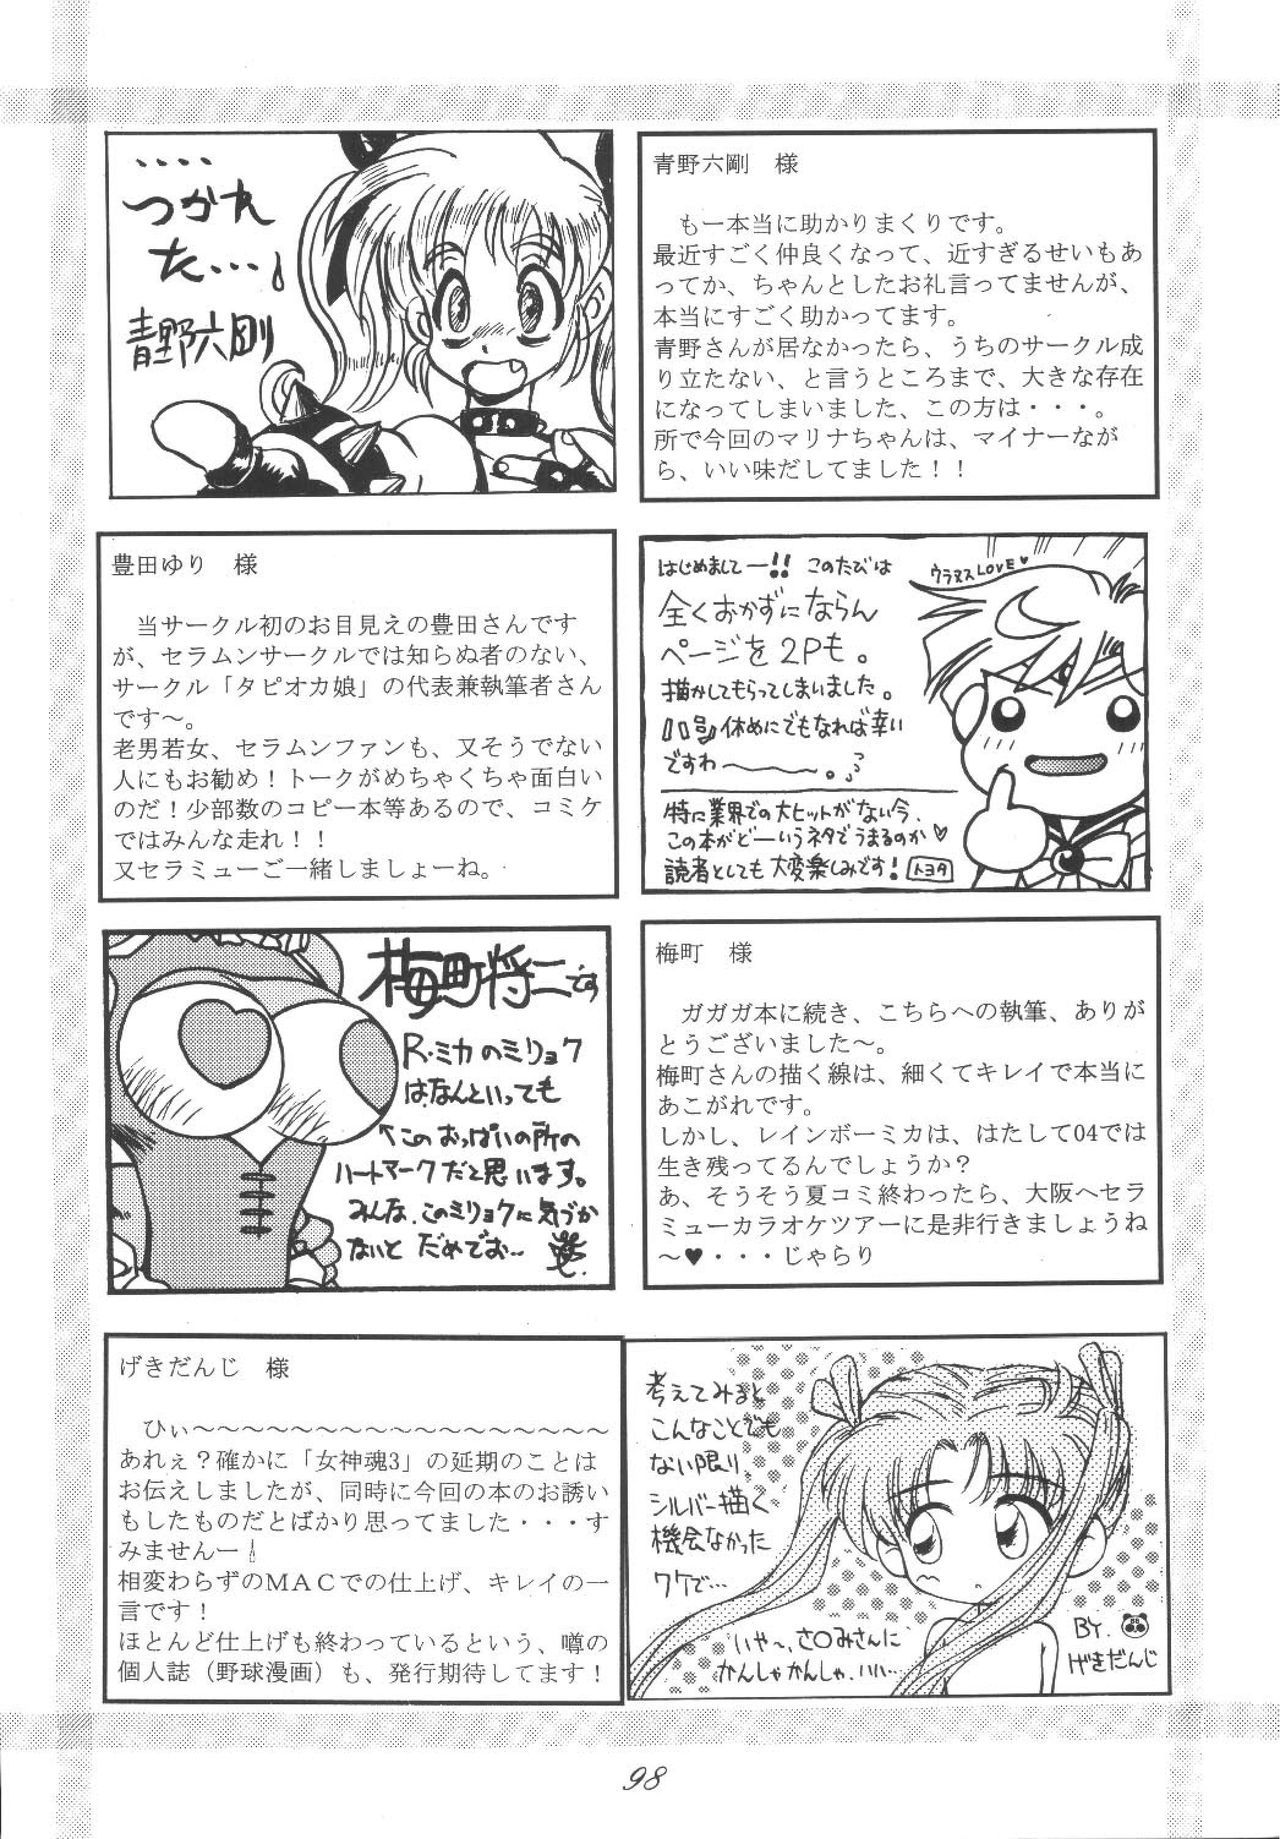 ‥‥
つかれ
た…
青野六剛
青野六剛　様
も一本当に助かりまくりです。
最近すごく仲良くなって、近すぎるせいもあ
ってか、ちゃんとしたお礼言ってませんが、
本当にすごく助かってます。
青野さんが居なかったら、うちのサークル成
り立たない、と言うところまで、大きな存在
になってしまいました、この方は・・・。
所で今回のマリナちゃんは、マイナーなが
ら、いい味だしてました！！
豊田ゆり　様
当サークル初のお目見えの豊田さんです
が、セラムンサークルでは知らぬ者のない、
サークル「タピオカ娘」の代表兼執筆者さん
です〜。
老男若女、セラムンファンも、又そうでない
人にもお勧め！トークがめちゃくちゃ面白い
のだ！少部数のコピー本等あるので、コミケ
ではみんな走れ！！
又セラミューご一緒しましょーね。
はじめましてー!! このたびは
全くおかずにならん
ページを2Pも。
描かしてもらってしまいました。
休めにでもなれば幸い
ですわ〜〜。
ウラヌスLOVE♥
特に業界での大ヒットがない今、
この本がどーいうネタでうまるのか♥
読者としても大変楽しみです！ トヨタ
梅町将二です
R・ミカのミリョク
はなんといっても
←このおっぱいの所の
ハートマークだと思います。
みんな、このミリョクに気づか
ないと だめでお…
梅町　様
ガガガ本に続き、こちらへの執筆、ありが
とうございました〜。
梅町さんの描く線は、細くてキレイで本当に
あこがれです。
しかし、レインボーミカは、はたして04では
生き残ってるんでしょうか？
あ、そうそう夏コミ終わったら、大阪へセラ
ミューカラオケツアーに是非行きましょうね
〜♥・・・じゃらり
げきだんじ　様
ひぃ〜〜〜〜〜〜〜〜〜〜〜〜〜〜〜〜〜
あれぇ？確かに「女神魂3」の延期のことは
お伝えしましたが、同時に今回の本のお誘い
もしたものだとばかり思ってました・・・す
みませんー
相変わらずのＭＡＣでの仕上げ、キレイの一
言です！
ほとんど仕上げも終わっているという、噂の
個人誌（野球漫画）も、発行期待してます！
考えてみると
こんなことでも
ない限り、
シルバー描く
機会なかった
ワケで…
いや〜、さ○みさんに
かんしゃかんしゃ、いい…
BY.
げきだんじ
98